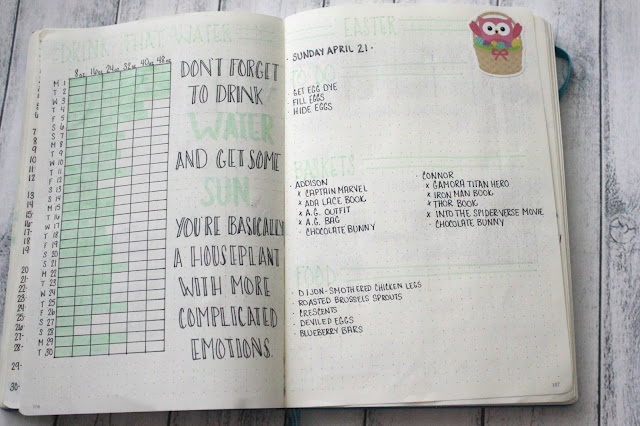 DRINK THAT WATER
8oz 16oz 24oz 32oz 40oz 48oz
M 1
T 2
W 3
T 4
F 5
S 6
S 7
M 8
T 9
W 10
T 11
F 12
S 13
S 14
M 15
T 16
W 17
T 18
F 19
S 20
S 21
M 22
T 23
W 24
T 25
F 26
S 27
S 28
M 29
T 30
DON'T FORGET
TO DRINK
WATER
AND GET SOME
SUN.
YOU'RE BASICALLY
A HOUSEPLANT
WITH MORE
COMPLICATED
EMOTIONS.
EASTER
· SUNDAY APRIL 21 ·
TO DO
· GET EGG DYE
· FILL EGGS
· HIDE EGGS
BASKETS
· ADDISON
x CAPTAIN MARVEL
x ADA LACE BOOK
x A.G. OUTFIT
x A.G. BAG
· CHOCOLATE BUNNY
· CONNOR
x GAMORA TITAN HERO
x IRON MAN BOOK
x THOR BOOK
x INTO THE SPIDERVERSE MOVIE
· CHOCOLATE BUNNY
FOOD
· DIJON-SMOTHERED CHICKEN LEGS
· ROASTED BRUSSELS SPROUTS
· CRESCENTS
· DEVILED EGGS
· BLUEBERRY BARS
107